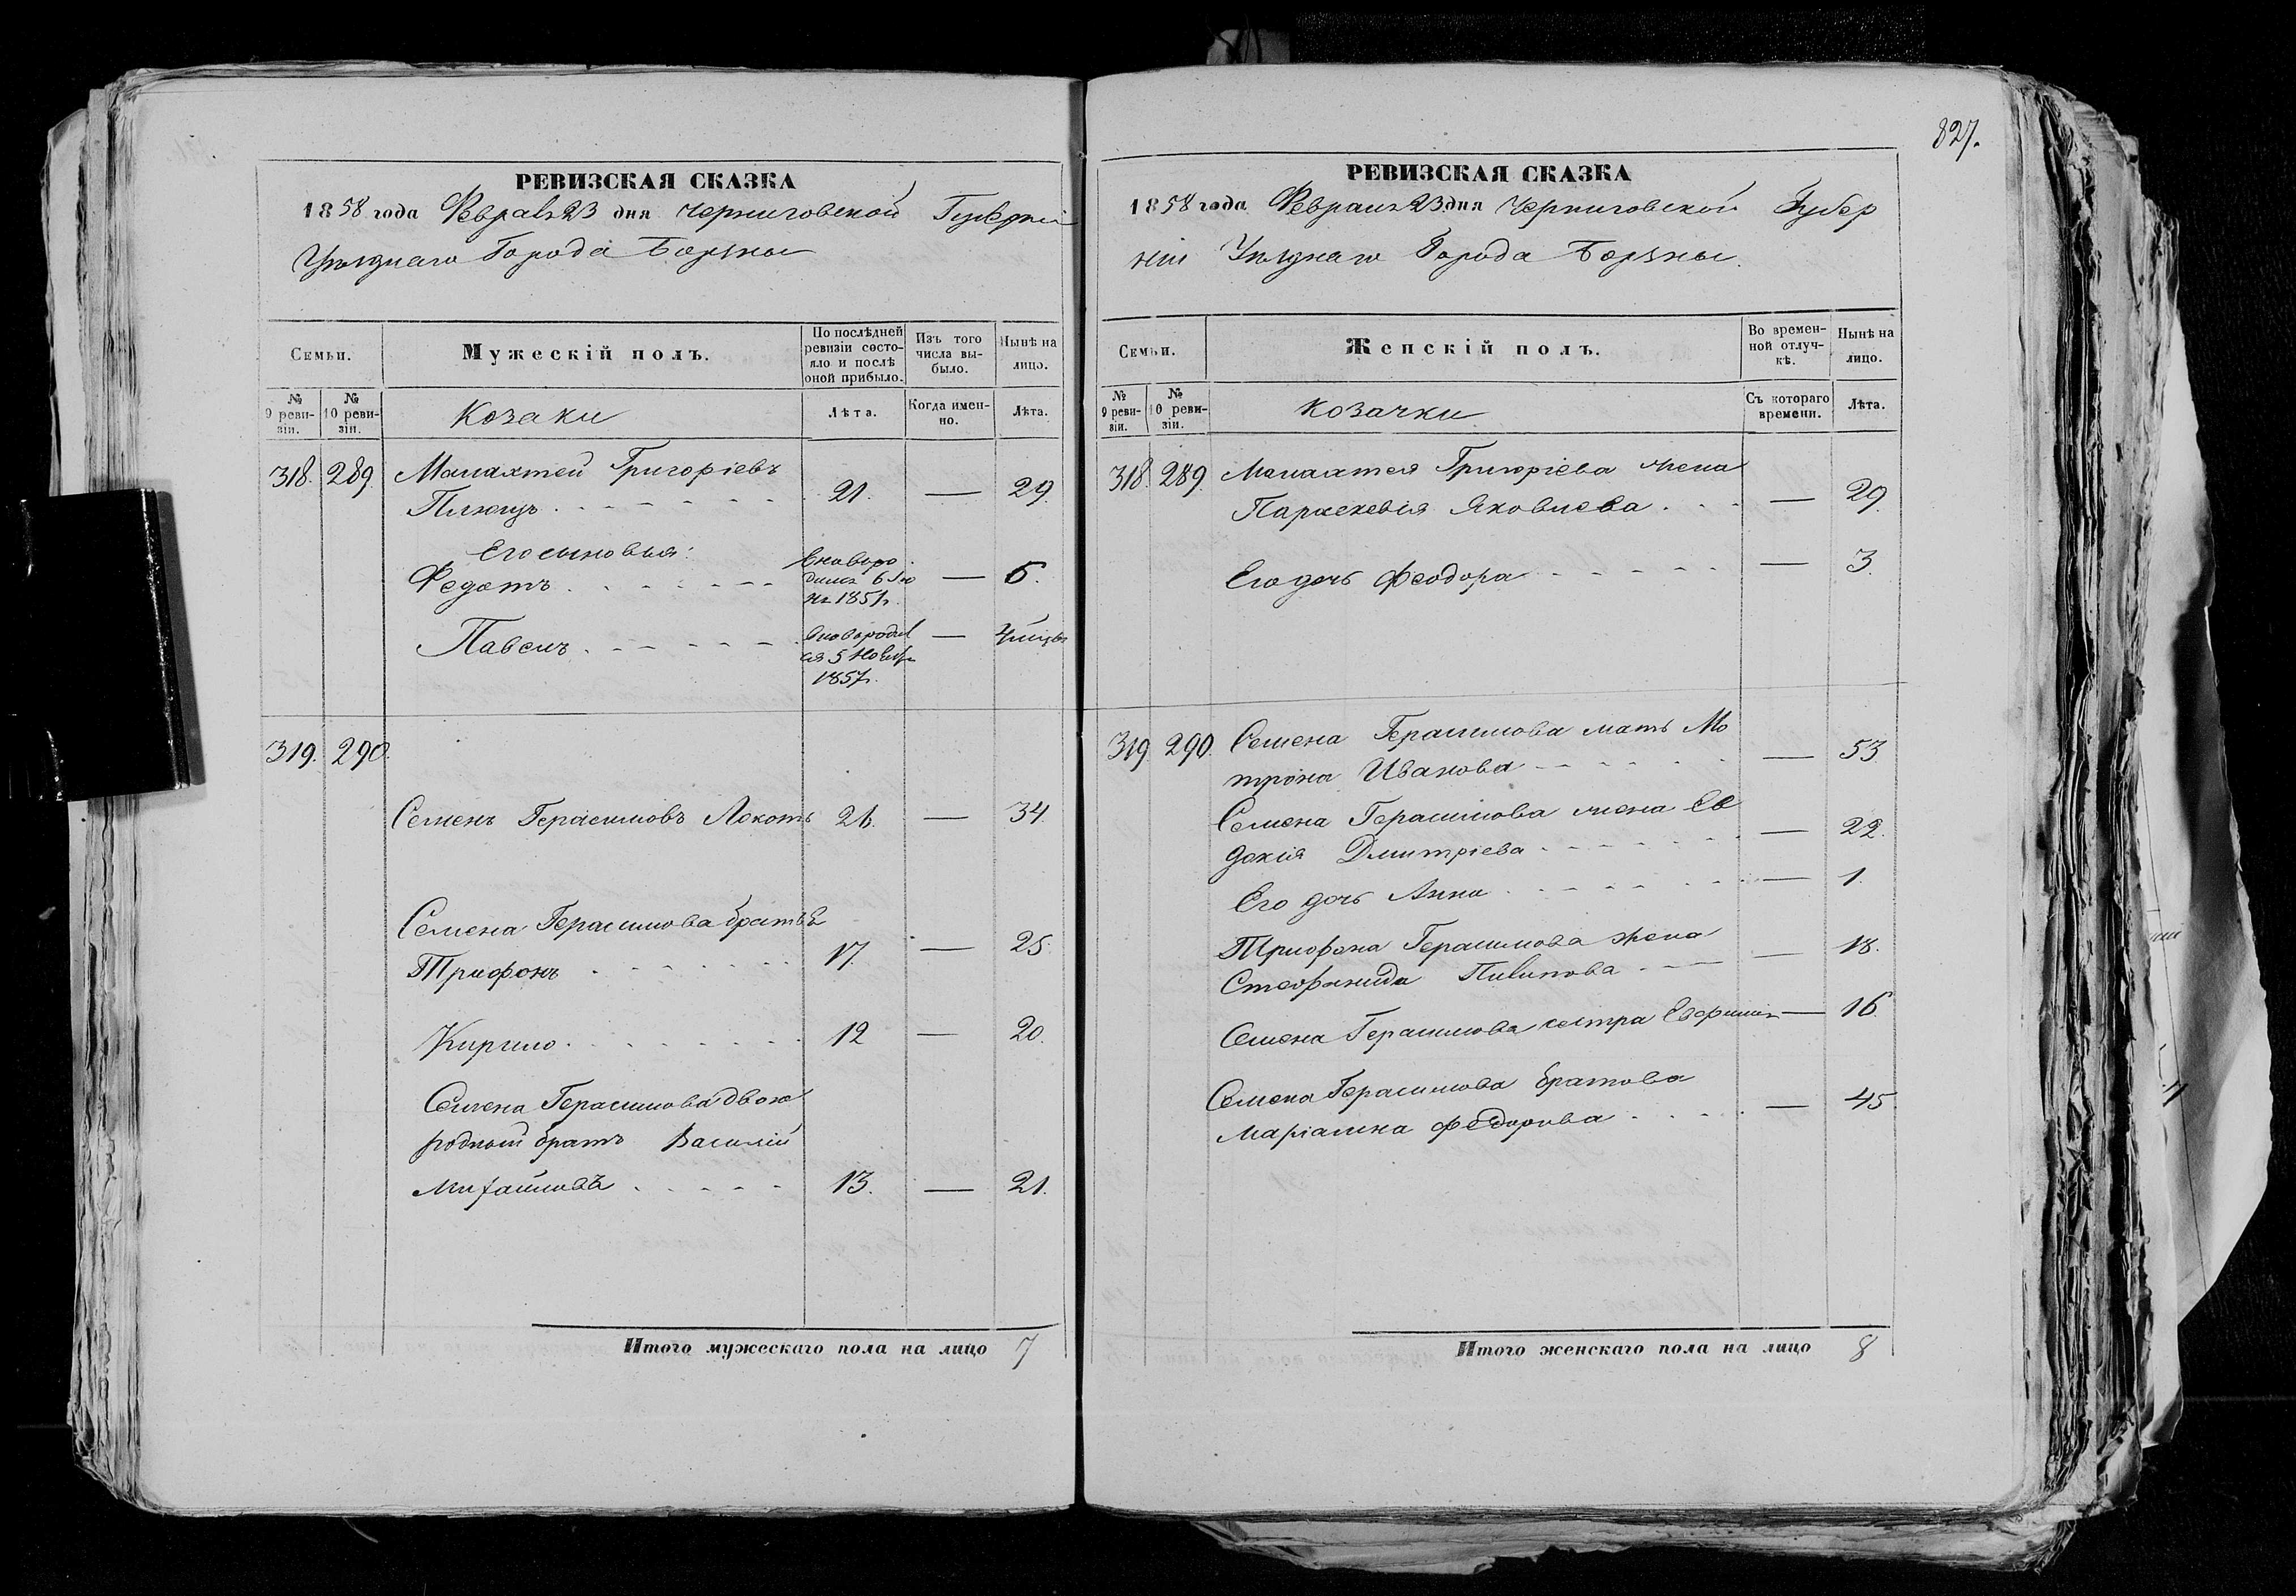 827.
РЕВИЗСКАЯ СКАЗКА
1858 года Февраля 23 дня Черниговской Губерніи
Уѣзднаго Города Борзны
Семьи.
Мужескій полъ.
По послѣдней ревизіи состояло и послѣ оной прибыло.
Изъ того числа выбыло.
Нынѣ на лицо.
№ 9 ревизіи.
№ 10 ревизіи.
Козаки
Лѣта.
Когда именно.
Лѣта.
318. 289. Малахтей Григоріевъ
Плющъ 21. — 29.
Его сыновья:
Федотъ — 6.
Павелъ — 4 мѣсяц
вновородил
ся 5 Ноября
1857г.
319. 290.
Семенъ Герасимовъ Локоть 26. — 34.
Семена Герасимова братья
Трифонъ 17. — 25.
Кирило 12 — 20.
Семена Герасимова двою
родный братъ Василій
Михайловъ 13. — 21.
Итого мужескаго пола на лицо 7
РЕВИЗСКАЯ СКАЗКА
1858 года Февраля 23 дня Черниговской Губер
ніи Уѣзднаго Города Борзны.
Семьи.
Женскій полъ.
Во временной отлучкѣ.
Нынѣ на лицо.
№ 9 ревизіи.
№ 10 ревизіи.
Козачки
Съ котораго времени.
Лѣта.
318. 289. Малахтея Григоріева жена
Параскевія Яковлева — 29.
Его дочь Феодора — 3.
319 290. Семена Герасимова мать Мо
трона Иванова — 53.
Семена Герасимова жена Ев
докія Дмитріева — 22.
Его дочь Анна — 1.
Трифона Герасимова жена
Стефанида — 18.
Семена Герасимова сестра — 16.
Семена Герасимова братова
Маріамна Федорова — 45.
Итого женскаго пола на лицо 8